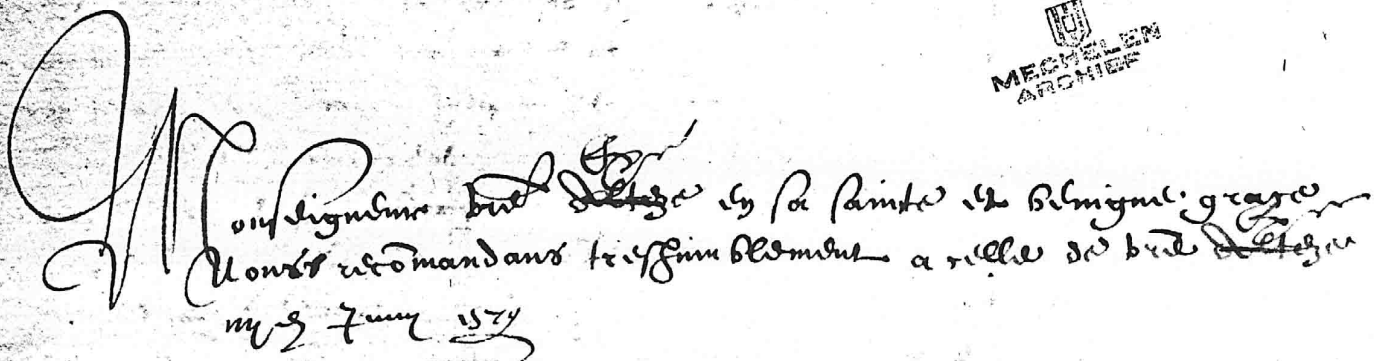 MECHELEN
ARCHIEF
Monseigneur vre en sa sainte et benigne grace
Nous recomandans treshumblement a celle de vre
Juny 1579